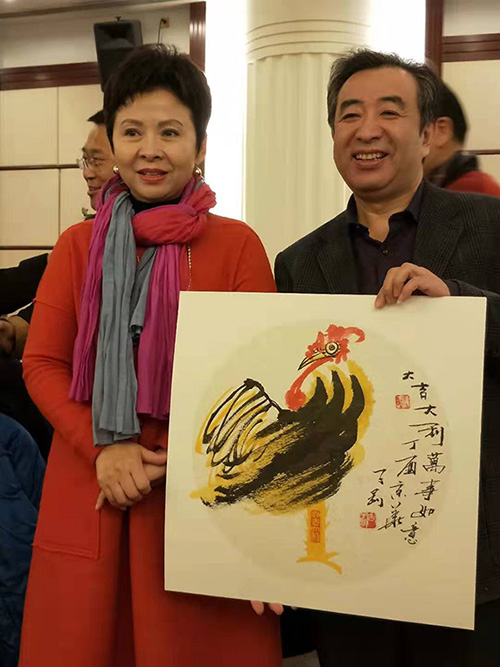 大吉大利萬事如意
丁酉京華